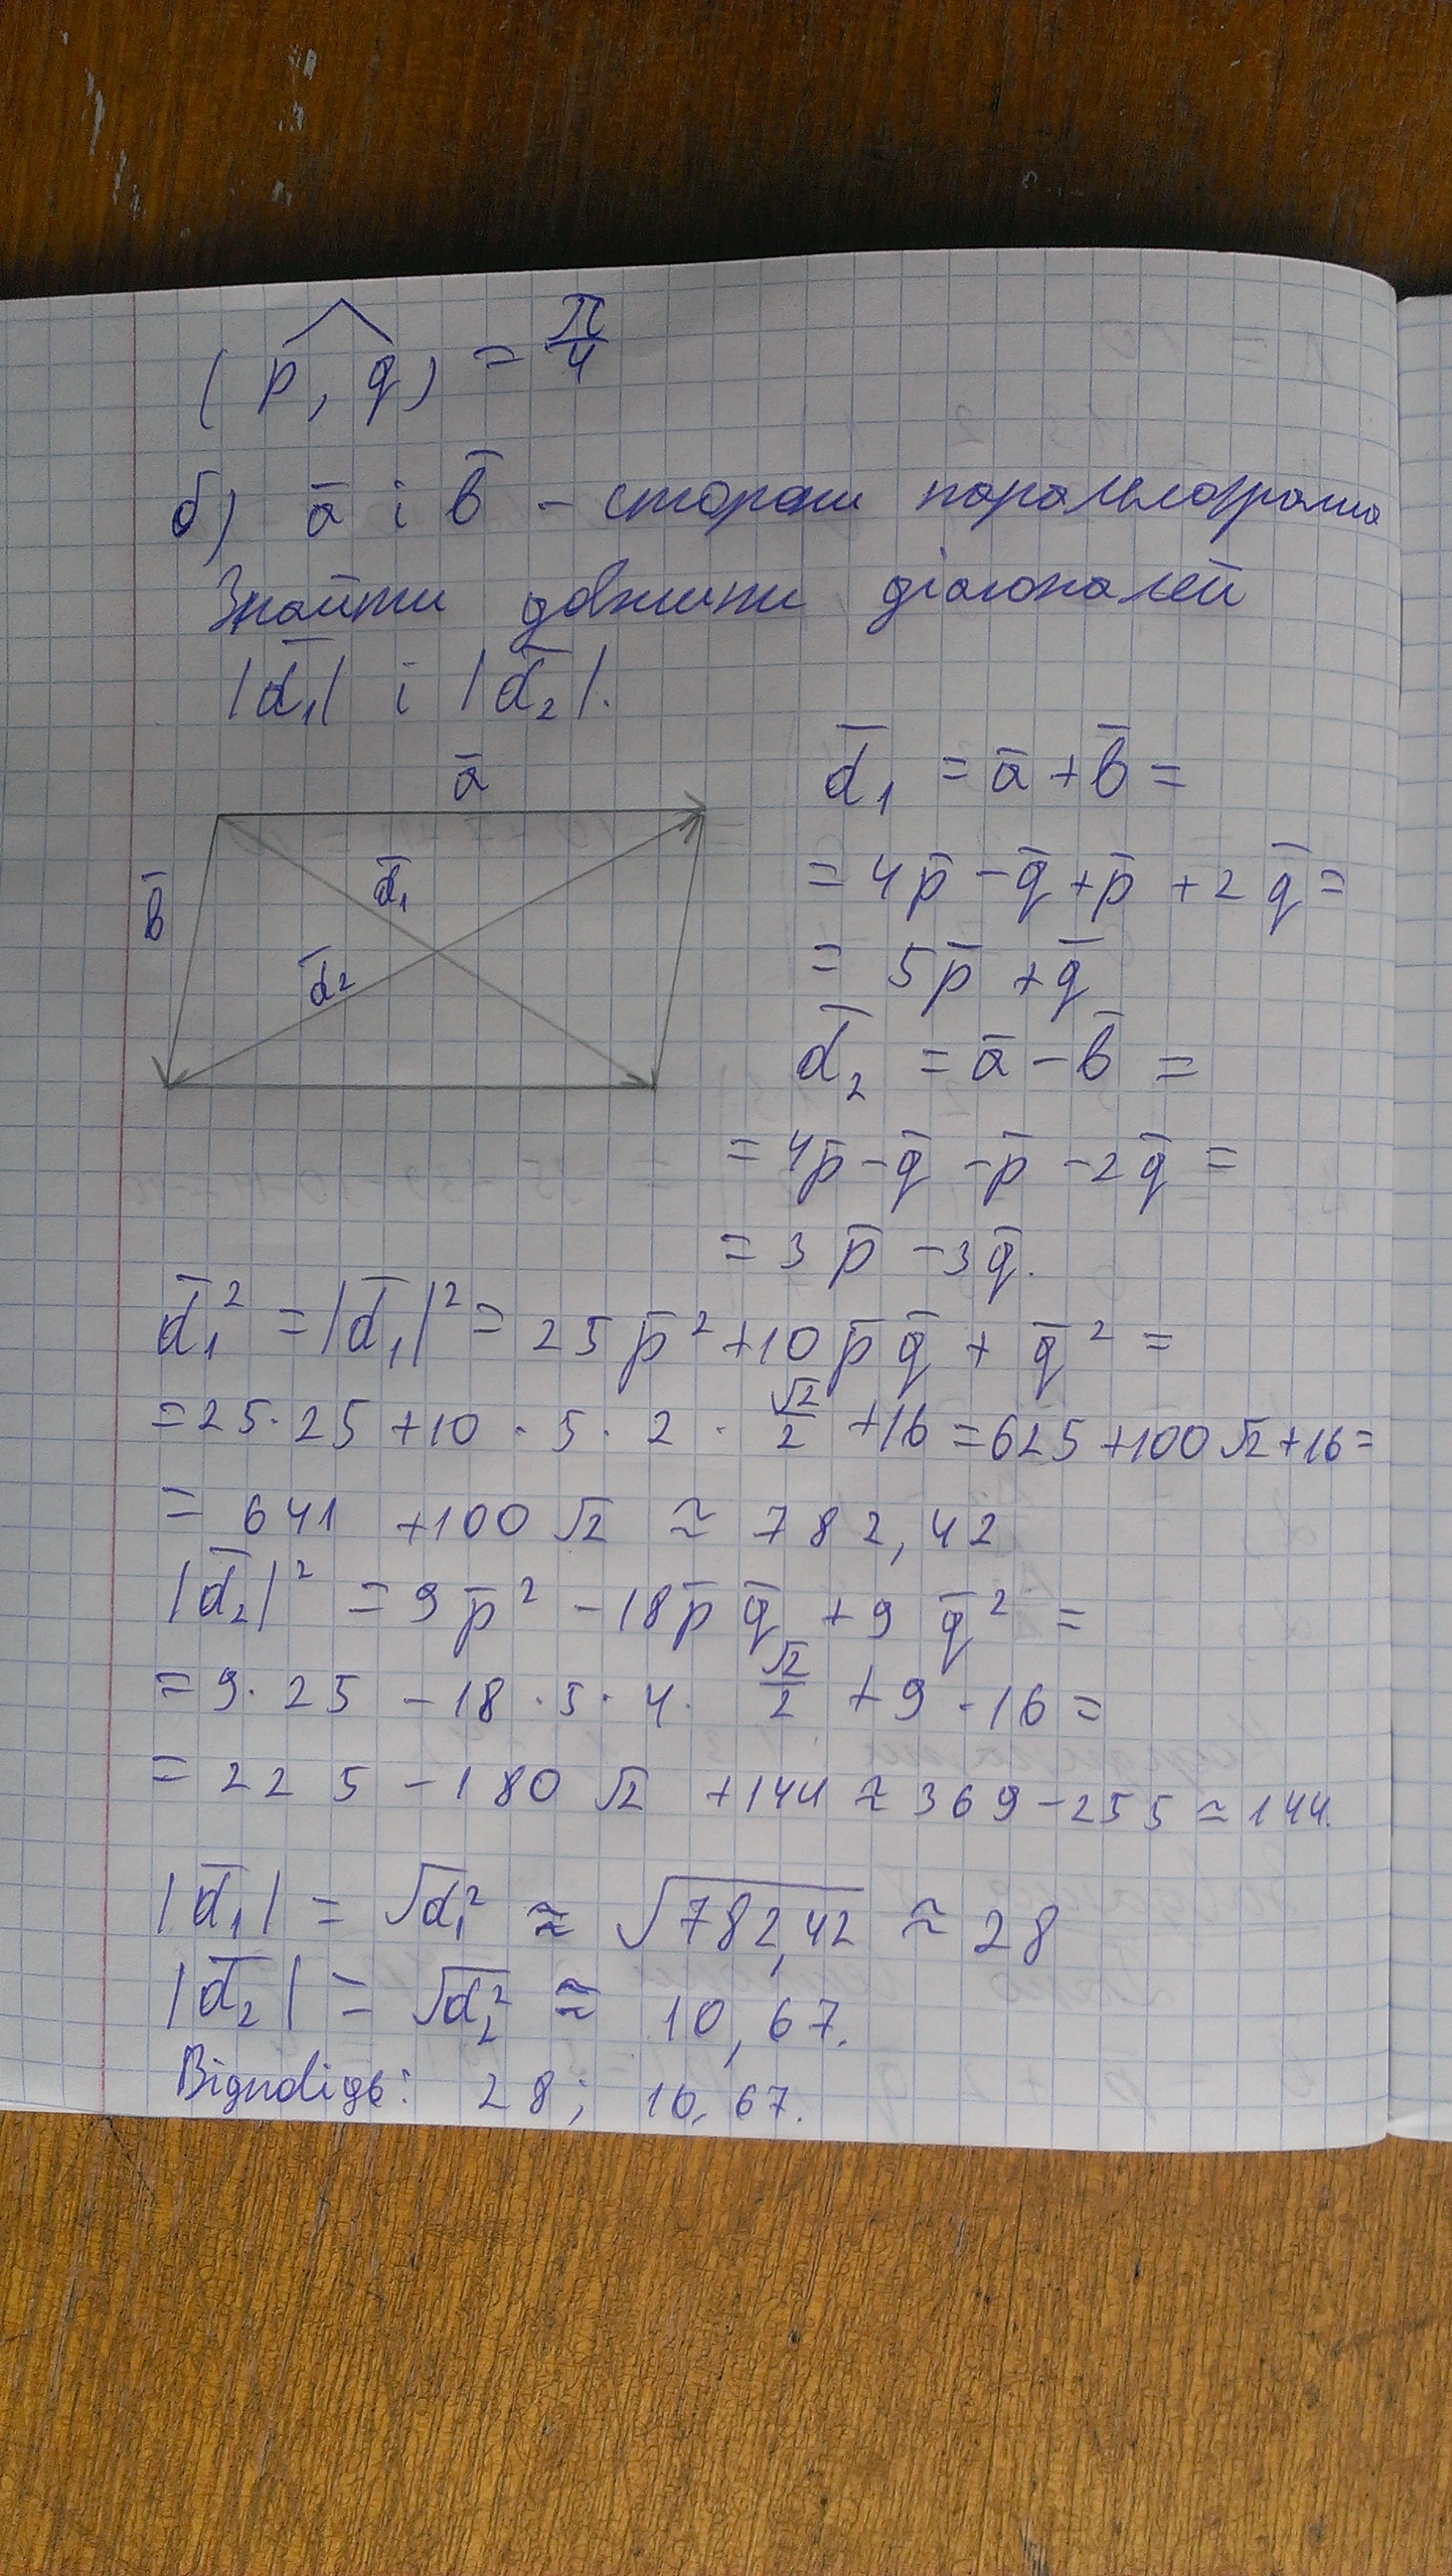 (p, q) = π/4
б) ā і b̄ – сторони паралелограма
Знайти довжини діагоналей
|d̄₁| і |d̄₂|.
ā
b̄
d̄₁
d̄₂
d̄₁ = ā + b̄ =
= 4p̄ – q̄ + p̄ + 2q̄ =
= 5p̄ + q̄
d̄₂ = ā – b̄ =
= 4p̄ – q̄ – p̄ – 2q̄ =
= 3p̄ – 3q̄.
d̄₁² = |d̄₁|² = 25p̄² + 10p̄q̄ + q̄² =
= 25 · 25 + 10 · 5 · 2 · √2/2 + 16 = 625 + 100√2 + 16 =
= 641 + 100√2 ≈ 782,42
|d̄₂|² = 9p̄² – 18p̄q̄ + 9q̄² =
= 9 · 25 – 18 · 5 · 4 · √2/2 + 9 · 16 =
= 225 – 180√2 + 144 ≈ 369 – 255 ≈ 144.
|d̄₁| = √d₁² ≈ √782,42 ≈ 28
|d̄₂| = √d₂² ≈ 10,67.
Відповідь: 28; 10,67.